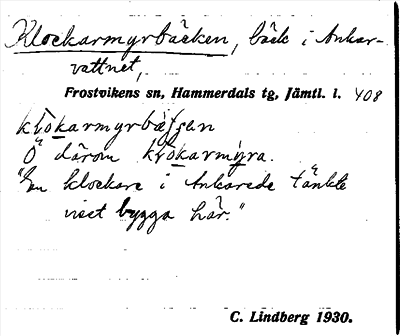 Klockarmyrbäcken, bäck i Ankar-
vattnet,
Frostvikens sn, Hammerdals tg, Jämtl. l. 408
klo̊karmyrbæ̨śśan
Ö därom klo̊karmy̨ra.
"En klockare i Ankarede tänkte
visst bygga här."
C. Lindberg 1930.